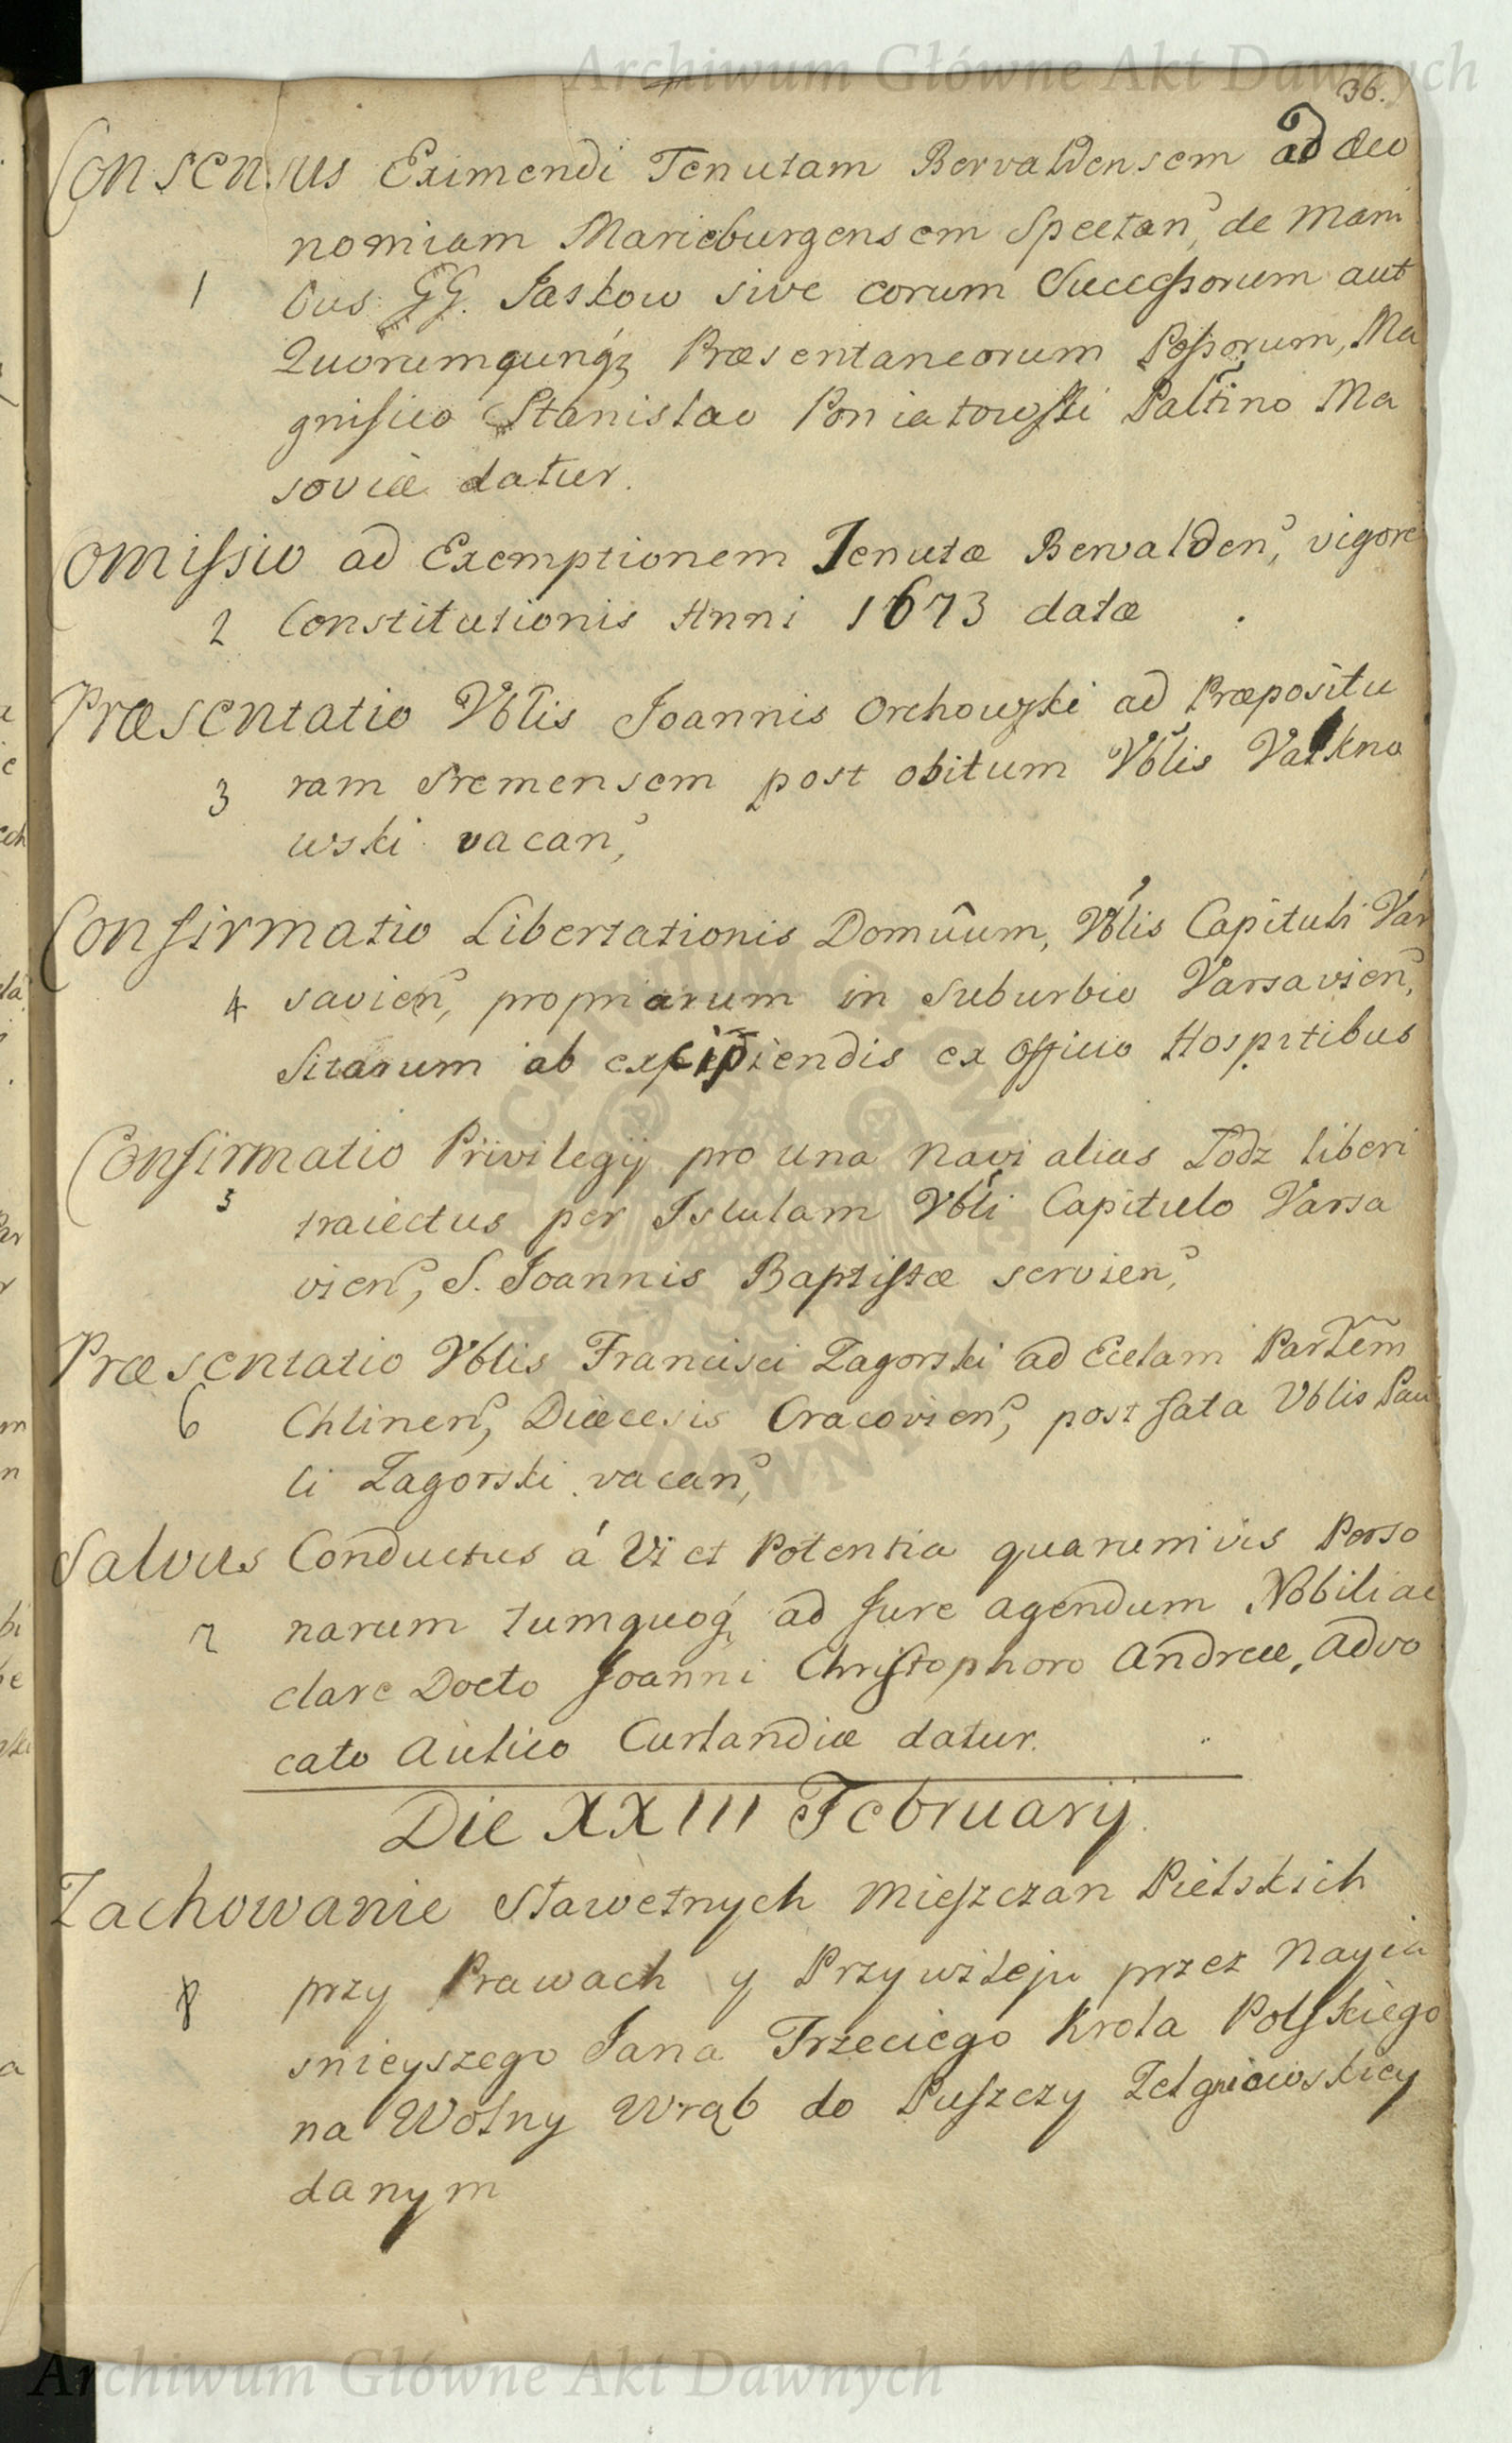 Archiwum Główne Akt Dawnych
36.
Consensus Eximendi Tenutam Bervaldensem ad Oeco
nomiam Marieburgensem Spectan, de Mani
1 bus GG. Jaskow sive eorum Successorum aut
Quorumqunqz Præsentaneorum Possorum, Ma
gnifico Stanislao Poniatowski Paltino Ma
soviæ datur.
Comissio ad Exemptionem Tenutæ Bervalden, vigore
2 Constitutionis Anni 1673 datæ
Præsentatio Vblis Joannis Orchowski ad Præpositu
3 ram Sremensem post obitum Vblis Valkno
wski vacan,
Confirmatio Libertationis Domûum, Vblis Capituli Var
4 savien, propriarum in Suburbio Varsavien,
Sitarum ab excipiendis ex Officio Hospitibus
Confirmatio Privilegij pro una navi alias Lodz liberi
5 traiectus per Istulam Vbli Capitulo Varsa
vien, S. Joannis Baptistæ servien,
Præsentatio Vblis Francisci Zagorski ad Eclam Parlem
6 Chlinen, Diæcesis Cracovien, post fata Vblis Pau
li Zagorski vacan,
Salvus Conductus á Vi et Potentia quarumvis Perso
7 narum tumquoq, ad Jure agendum Nobili ac
clare Docto Joanni Christophoro Andreæ, Advo
cato Aulico Curlandiæ datur.
Die XXIII February
Zachowanie Sławetnych Mieszczan Pielskich
8 przy Prawach y Przywileju przez Nayia
snieyszego Jana Trzeciego Krola Polskiego
na Wolny Wrąb do Puszczy Zelgniowskiey
danym
ARCHIWUM GŁÓWNE AKT DAWNYCH
Archiwum Główne Akt Dawnych